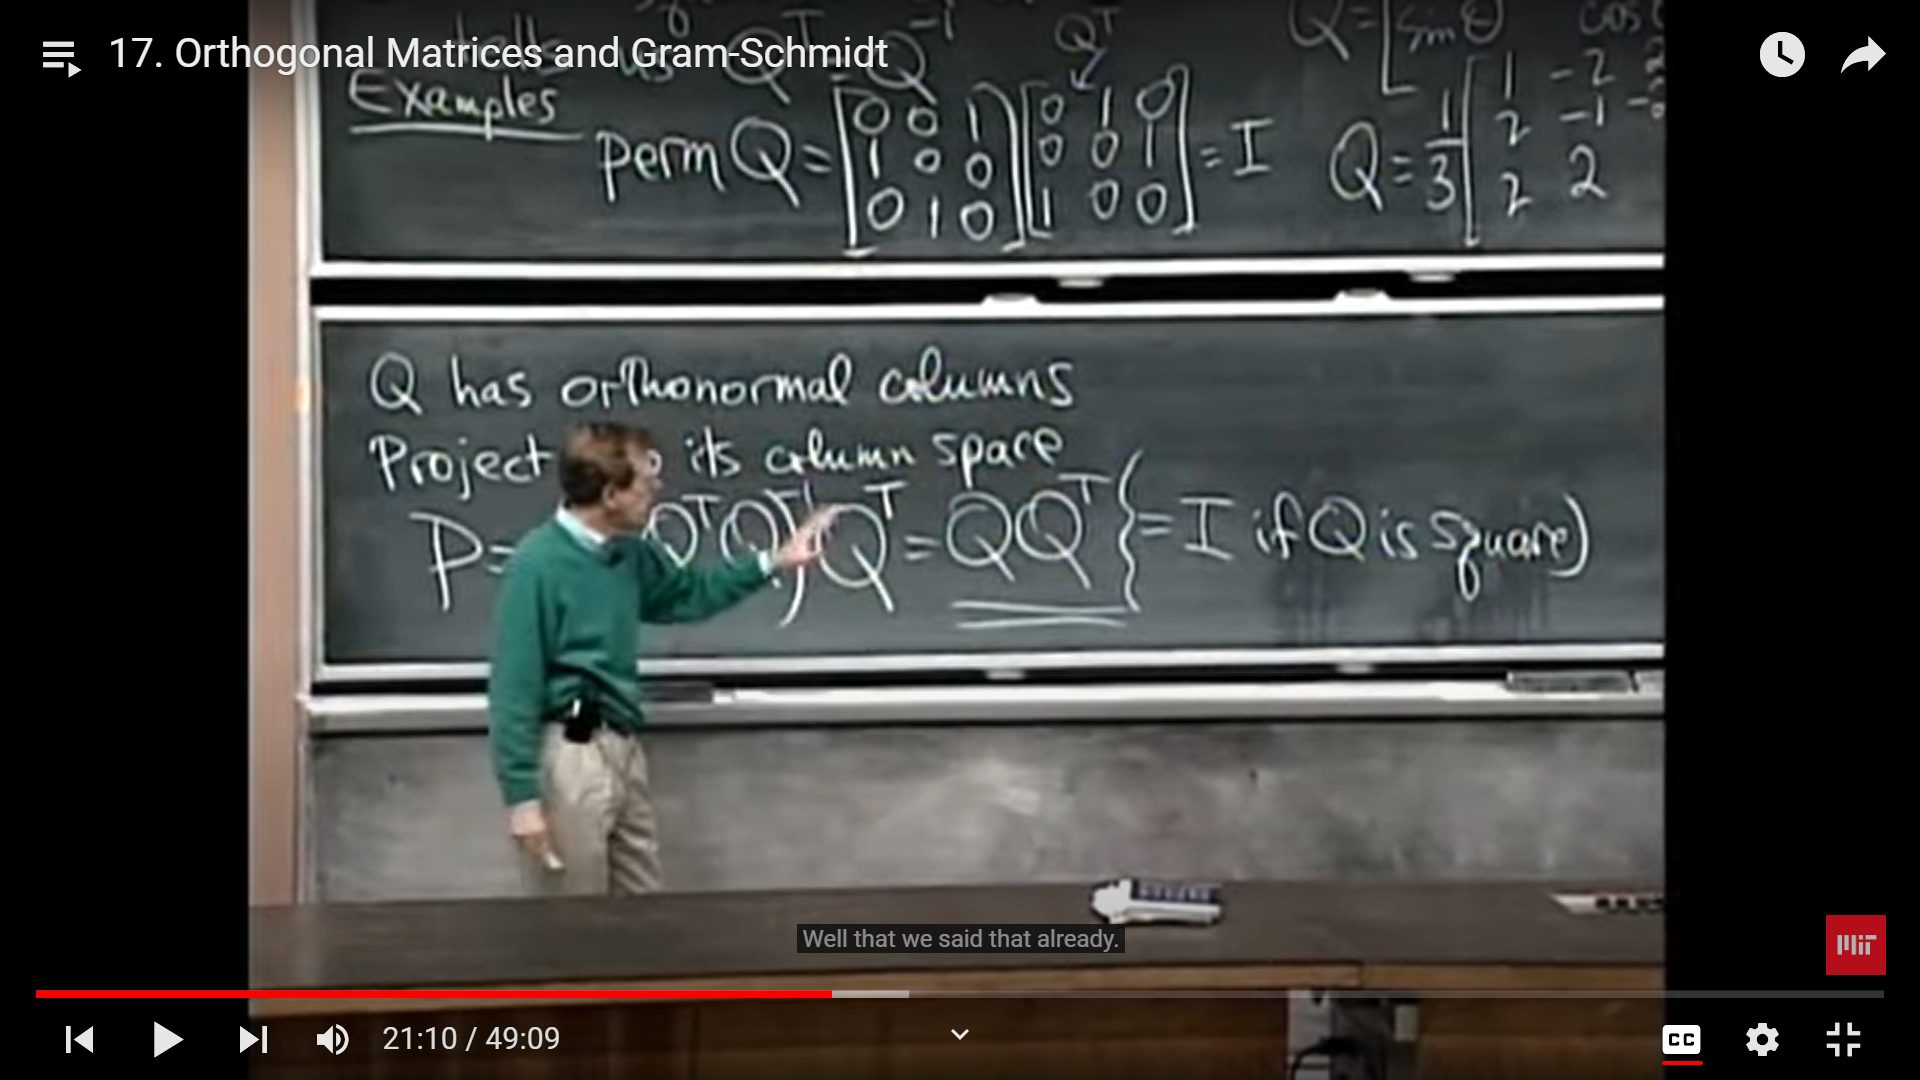 17. Orthogonal Matrices and Gram-Schmidt
us Q^T = Q^-1
Q^T
Q = [sin θ cos
Examples
perm Q = [0 0 1] [0 1 0] = I
[1 0 0] [0 0 1]
[0 1 0] [1 0 0]
Q = 1/3 [1 -2
2 -1
2 2
Q has orthonormal columns
Project its column space
P = Q^T Q)^-1 Q^T = QQ^T { = I if Q is square)
Well that we said that already.
MIT
21:10 / 49:09
CC